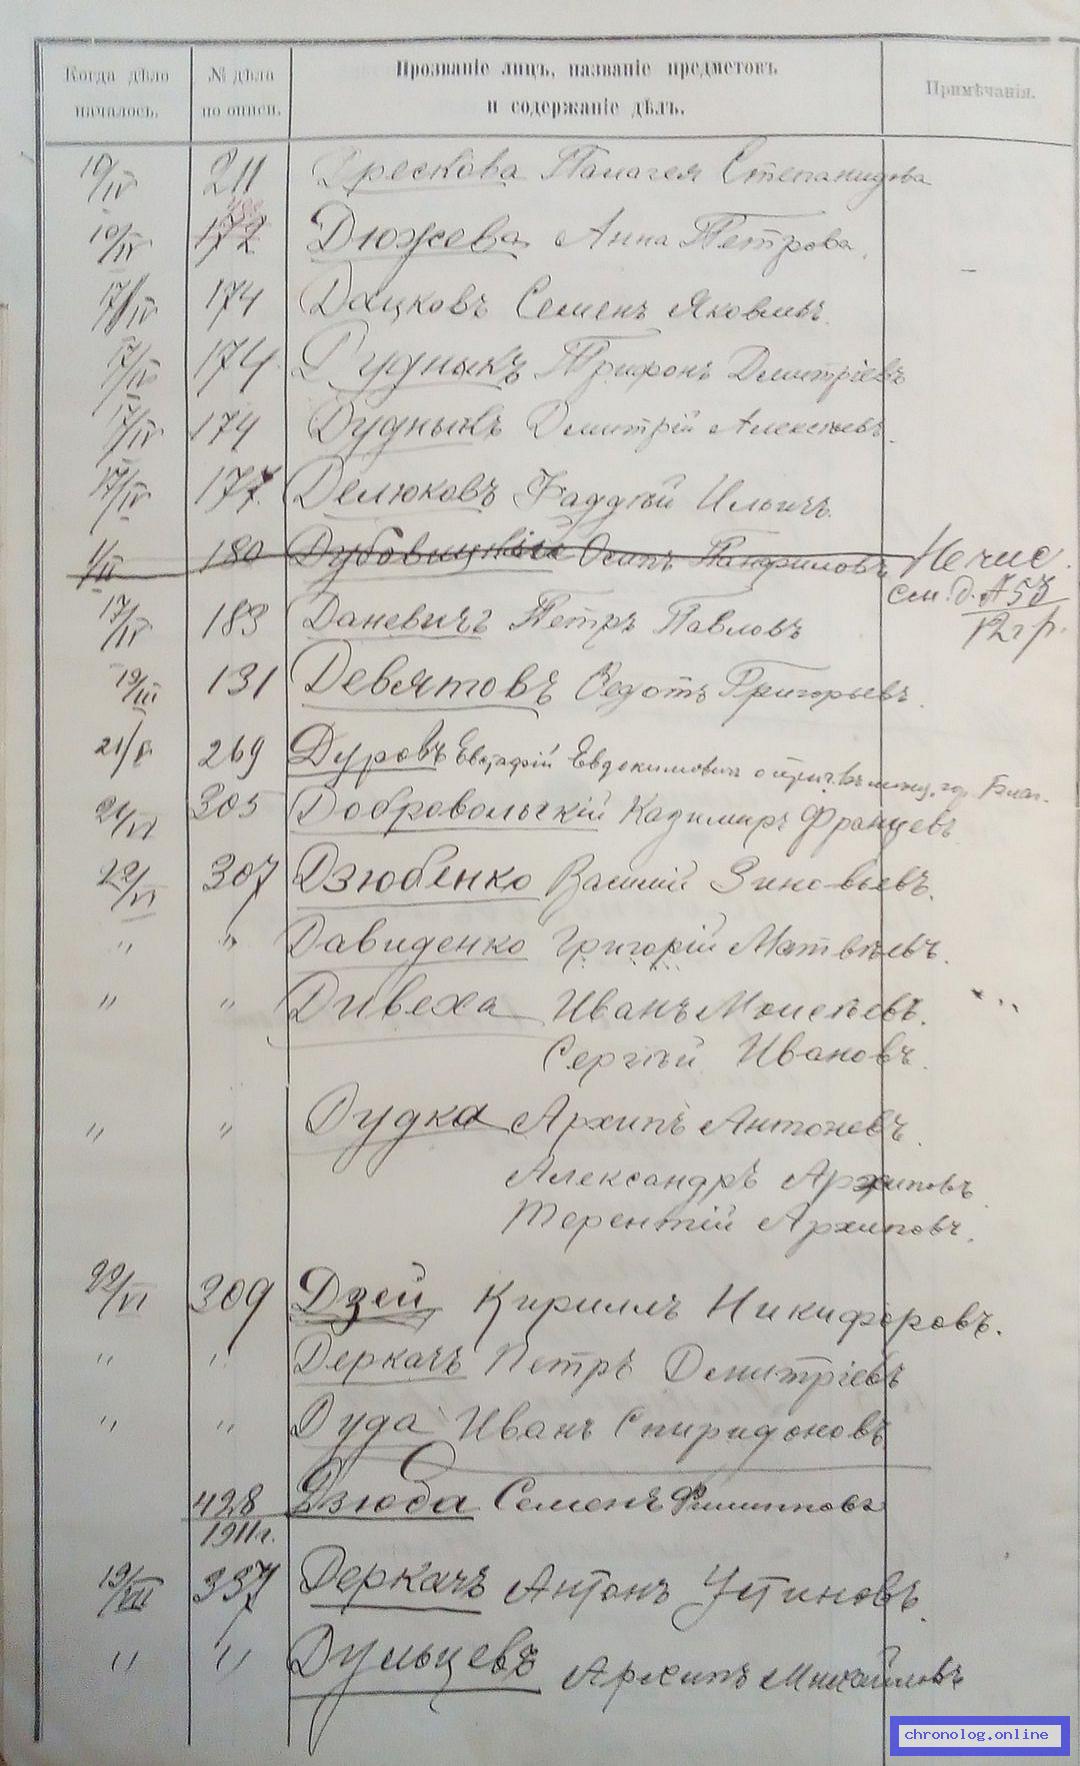 Когда дѣло началось. № дѣла по описи. Прозваніе лицъ, названіе предметовъ и содержаніе дѣлъ. Примѣчанія.
19/IV 211 Дрескова Палагея Степанидова
10/IV 172 Дюжева Анна Петрова.
17/IV 174 Дацковъ Семенъ Яковлевъ.
17/IV 174 Дудныкъ Трифонъ Дмитріевъ
17/IV 174 Дудныкъ Дмитрій Алексѣевъ.
17/IV 177. Делюковъ Фаддѣй Ильичъ.
1/II 180 Дубовицкій Осипъ Панфиловъ Не чис.
см. д. № 53
12 гр.
17/IV 183 Даневичъ Петръ Павловъ
19/III 131 Девятовъ Ѳедотъ Григорьевъ.
21/V 269 Дуровъ Евстафій Евдокимовичъ
21/VI 305 Добровольскій Казимиръ Францевъ
22/VI 307 Дзюбенко Василій Зиновьевъ.
" " Давиденко Григорій Матвѣевъ.
" " Дивеха Иванъ Моисѣевъ.
Сергѣй Ивановъ.
" " Дудка Архипъ Антоновъ.
Александръ Архиповъ.
Терентій Архиповъ.
22/VI 309 Дзей Кириллъ Никифоровъ.
" " Деркачъ Петръ Дмитріевъ
" " Дуда Иванъ Спиридоновъ
428 Дзюба Семенъ Филипповъ
1911 г.
19/VII 337 Деркачъ Антонъ Устиновъ.
" " Дульцевъ Архипъ Михайловъ
chronolog.online